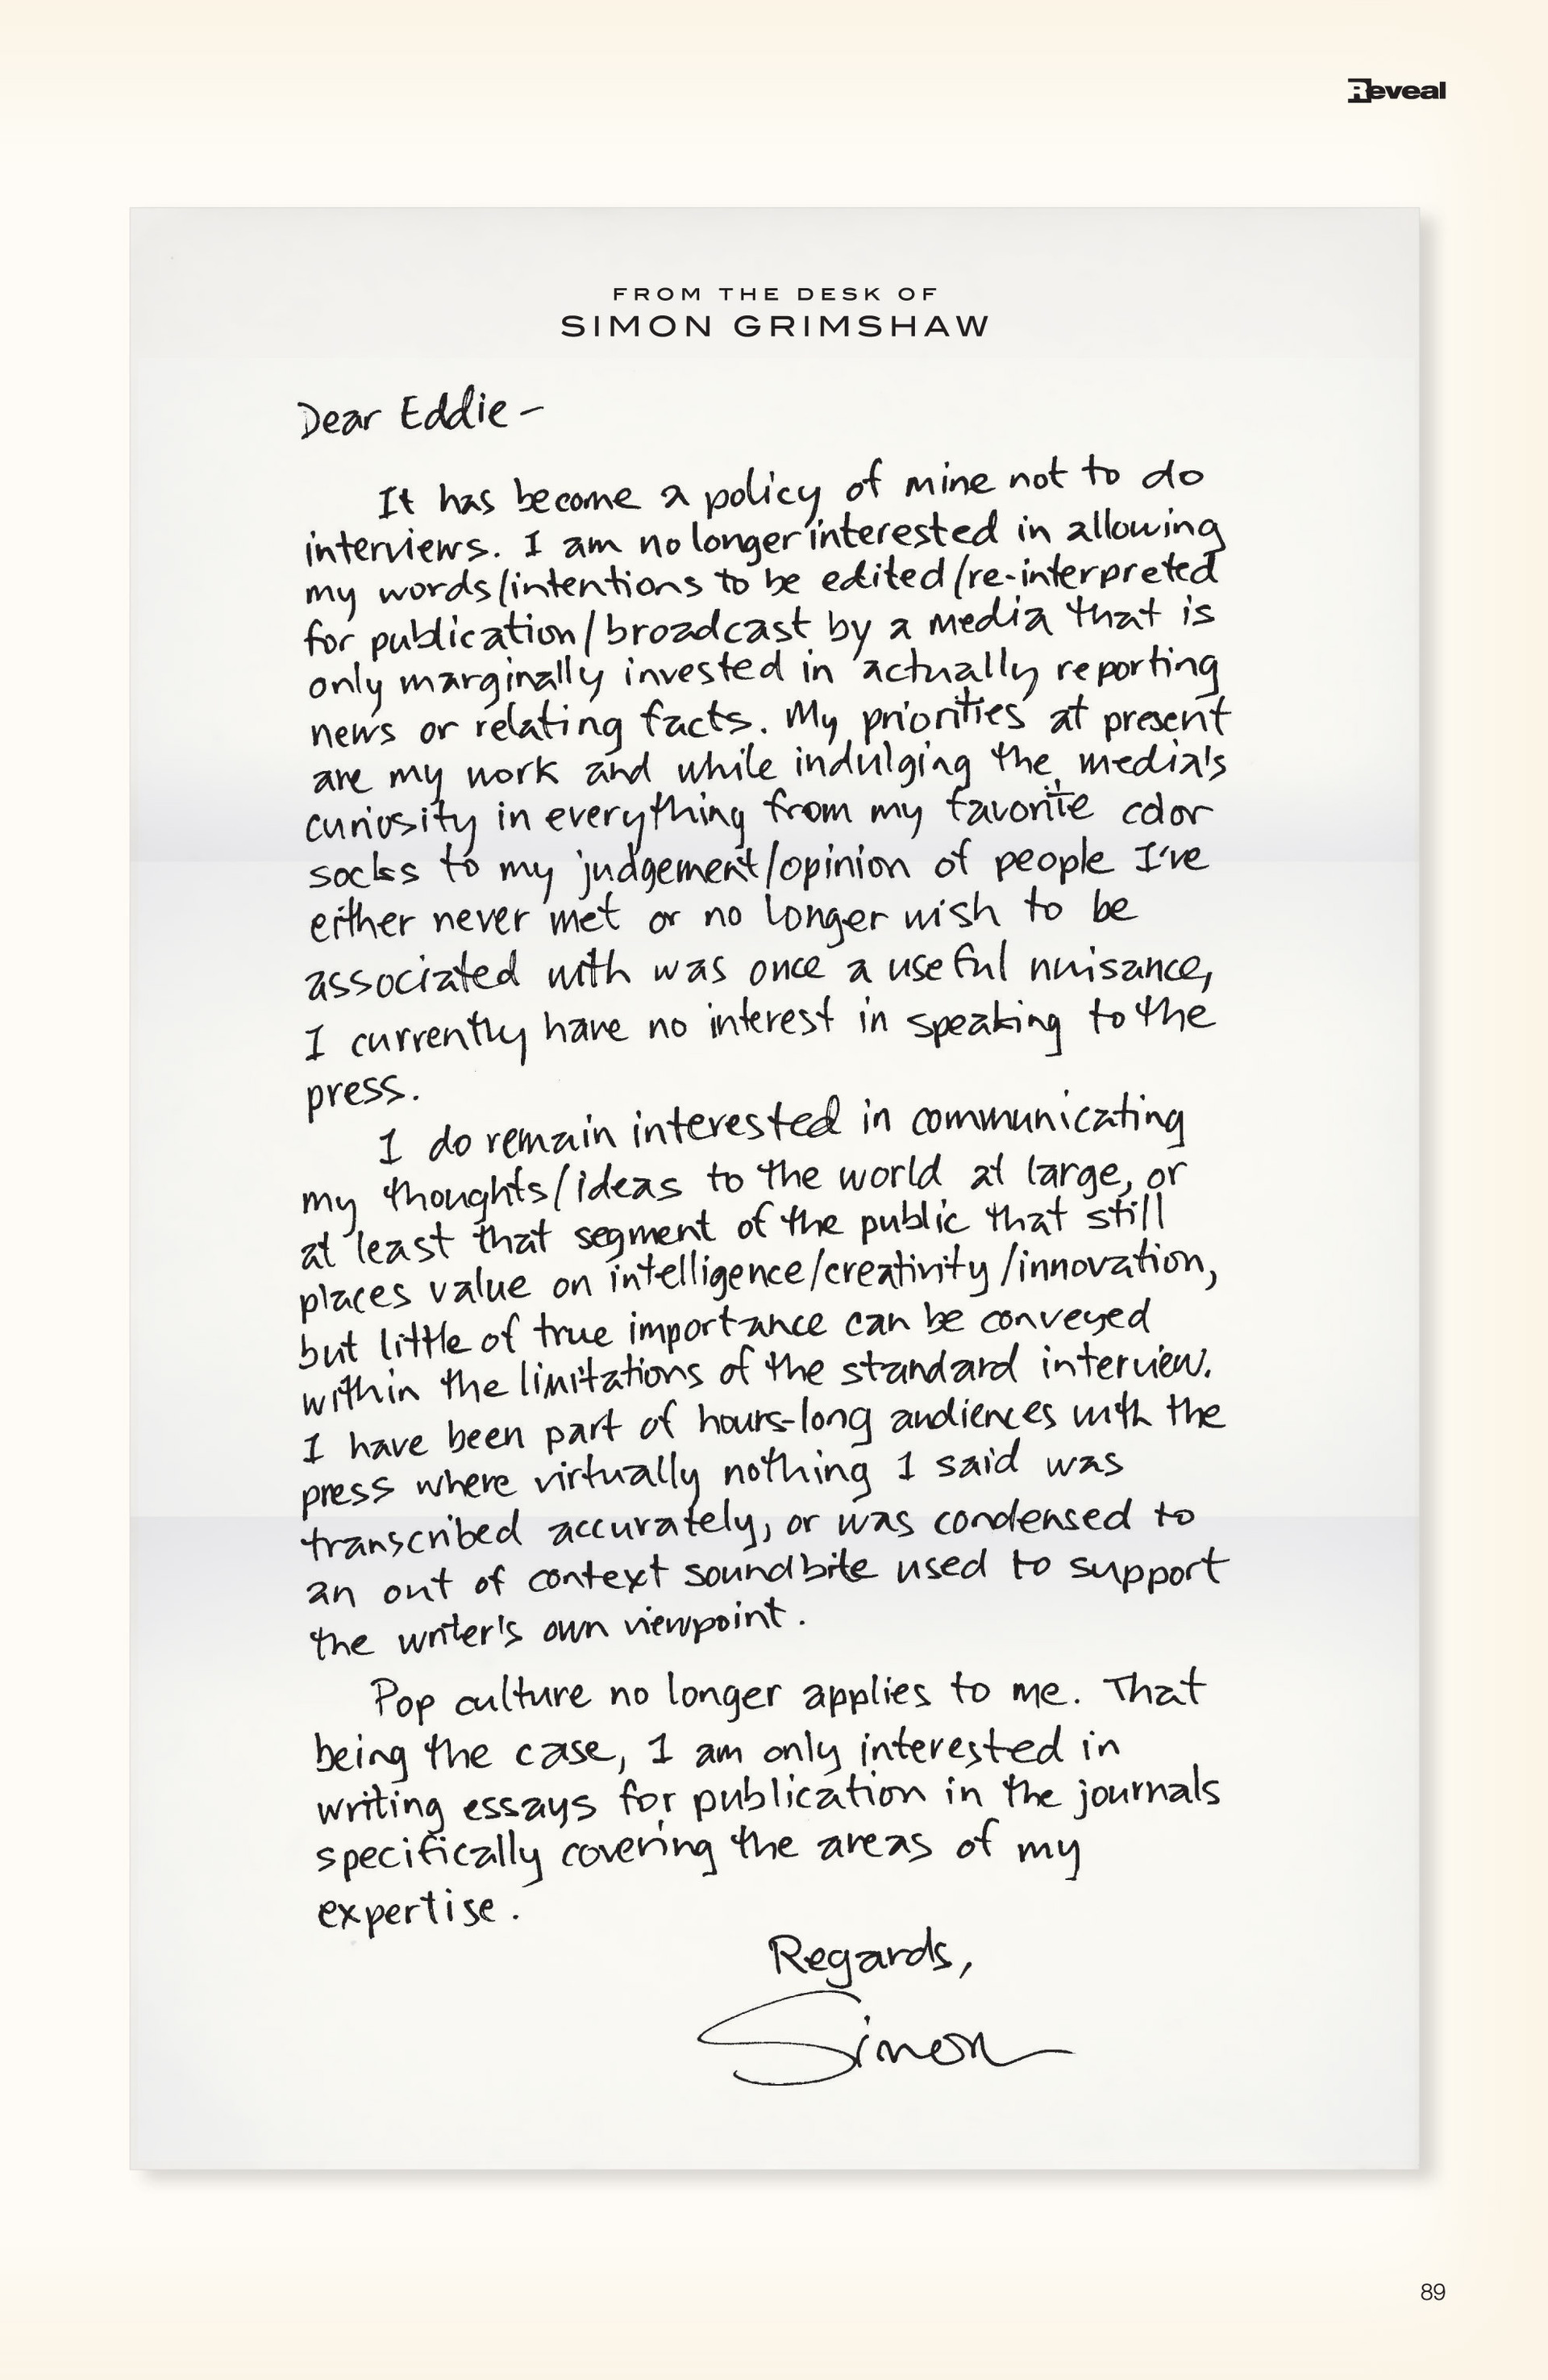 Reveal
FROM THE DESK OF
SIMON GRIMSHAW
Dear Eddie –
It has become a policy of mine not to do
interviews. I am no longer interested in allowing
my words/intentions to be edited/re-interpreted
for publication/broadcast by a media that is
only marginally invested in actually reporting
news or relating facts. My priorities at present
are my work and while indulging the media's
curiosity in everything from my favorite color
socks to my judgement/opinion of people I've
either never met or no longer wish to be
associated with was once a useful nuisance,
I currently have no interest in speaking to the
press.
I do remain interested in communicating
my thoughts/ideas to the world at large, or
at least that segment of the public that still
places value on intelligence/creativity/innovation,
but little of true importance can be conveyed
within the limitations of the standard interview.
I have been part of hours-long audiences with the
press where virtually nothing I said was
transcribed accurately, or was condensed to
an out of context soundbite used to support
the writer's own viewpoint.
Pop culture no longer applies to me. That
being the case, I am only interested in
writing essays for publication in the journals
specifically covering the areas of my
expertise.
Regards,
Simon
89